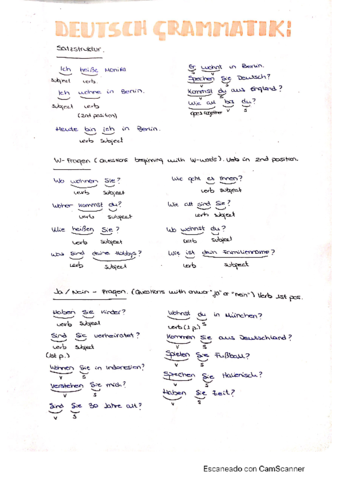 DEUTSCH GRAMMATIK!
Satzstruktur.
Ich heiße Monika
subject verb
Ich wohne in Berlin.
subject verb
(2nd position)
Heute bin ich in Berlin.
verb subject
Er wohnt in Berlin.
Sprechen Sie Deutsch?
v s
Kommst du aus England?
v s
Wie alt bist du?
v s
W-Fragen (Questions beginning with W-words). Verb in 2nd position.
Wo wohnen Sie?
verb subject
Woher kommst du?
verb subject
Wie heißen Sie?
verb subject
Was sind deine Hobbys?
verb subject
Wie geht es Ihnen?
verb subject
Wie alt sind Sie?
verb subject
Wo wohnst du?
verb subject
Wie ist dein Familienname?
verb subject
Ja / Nein - Fragen. (Questions with answer "ja" or "nein") Verb 1st pos.
Haben Sie Kinder?
verb subject
Sind Sie verheiratet?
verb subject
(1st p.)
Wohnen Sie in Indonesien?
v s
Verstehen Sie mich?
v s
Sind Sie 30 Jahre alt?
v s
Wohnst du in München?
verb (1 p.) s
Kommen Sie aus Deutschland?
v s
Spielen Sie Fußball?
v s
Sprechen Sie Italienisch?
v s
Haben Sie Zeit?
v s
Escaneado con CamScanner